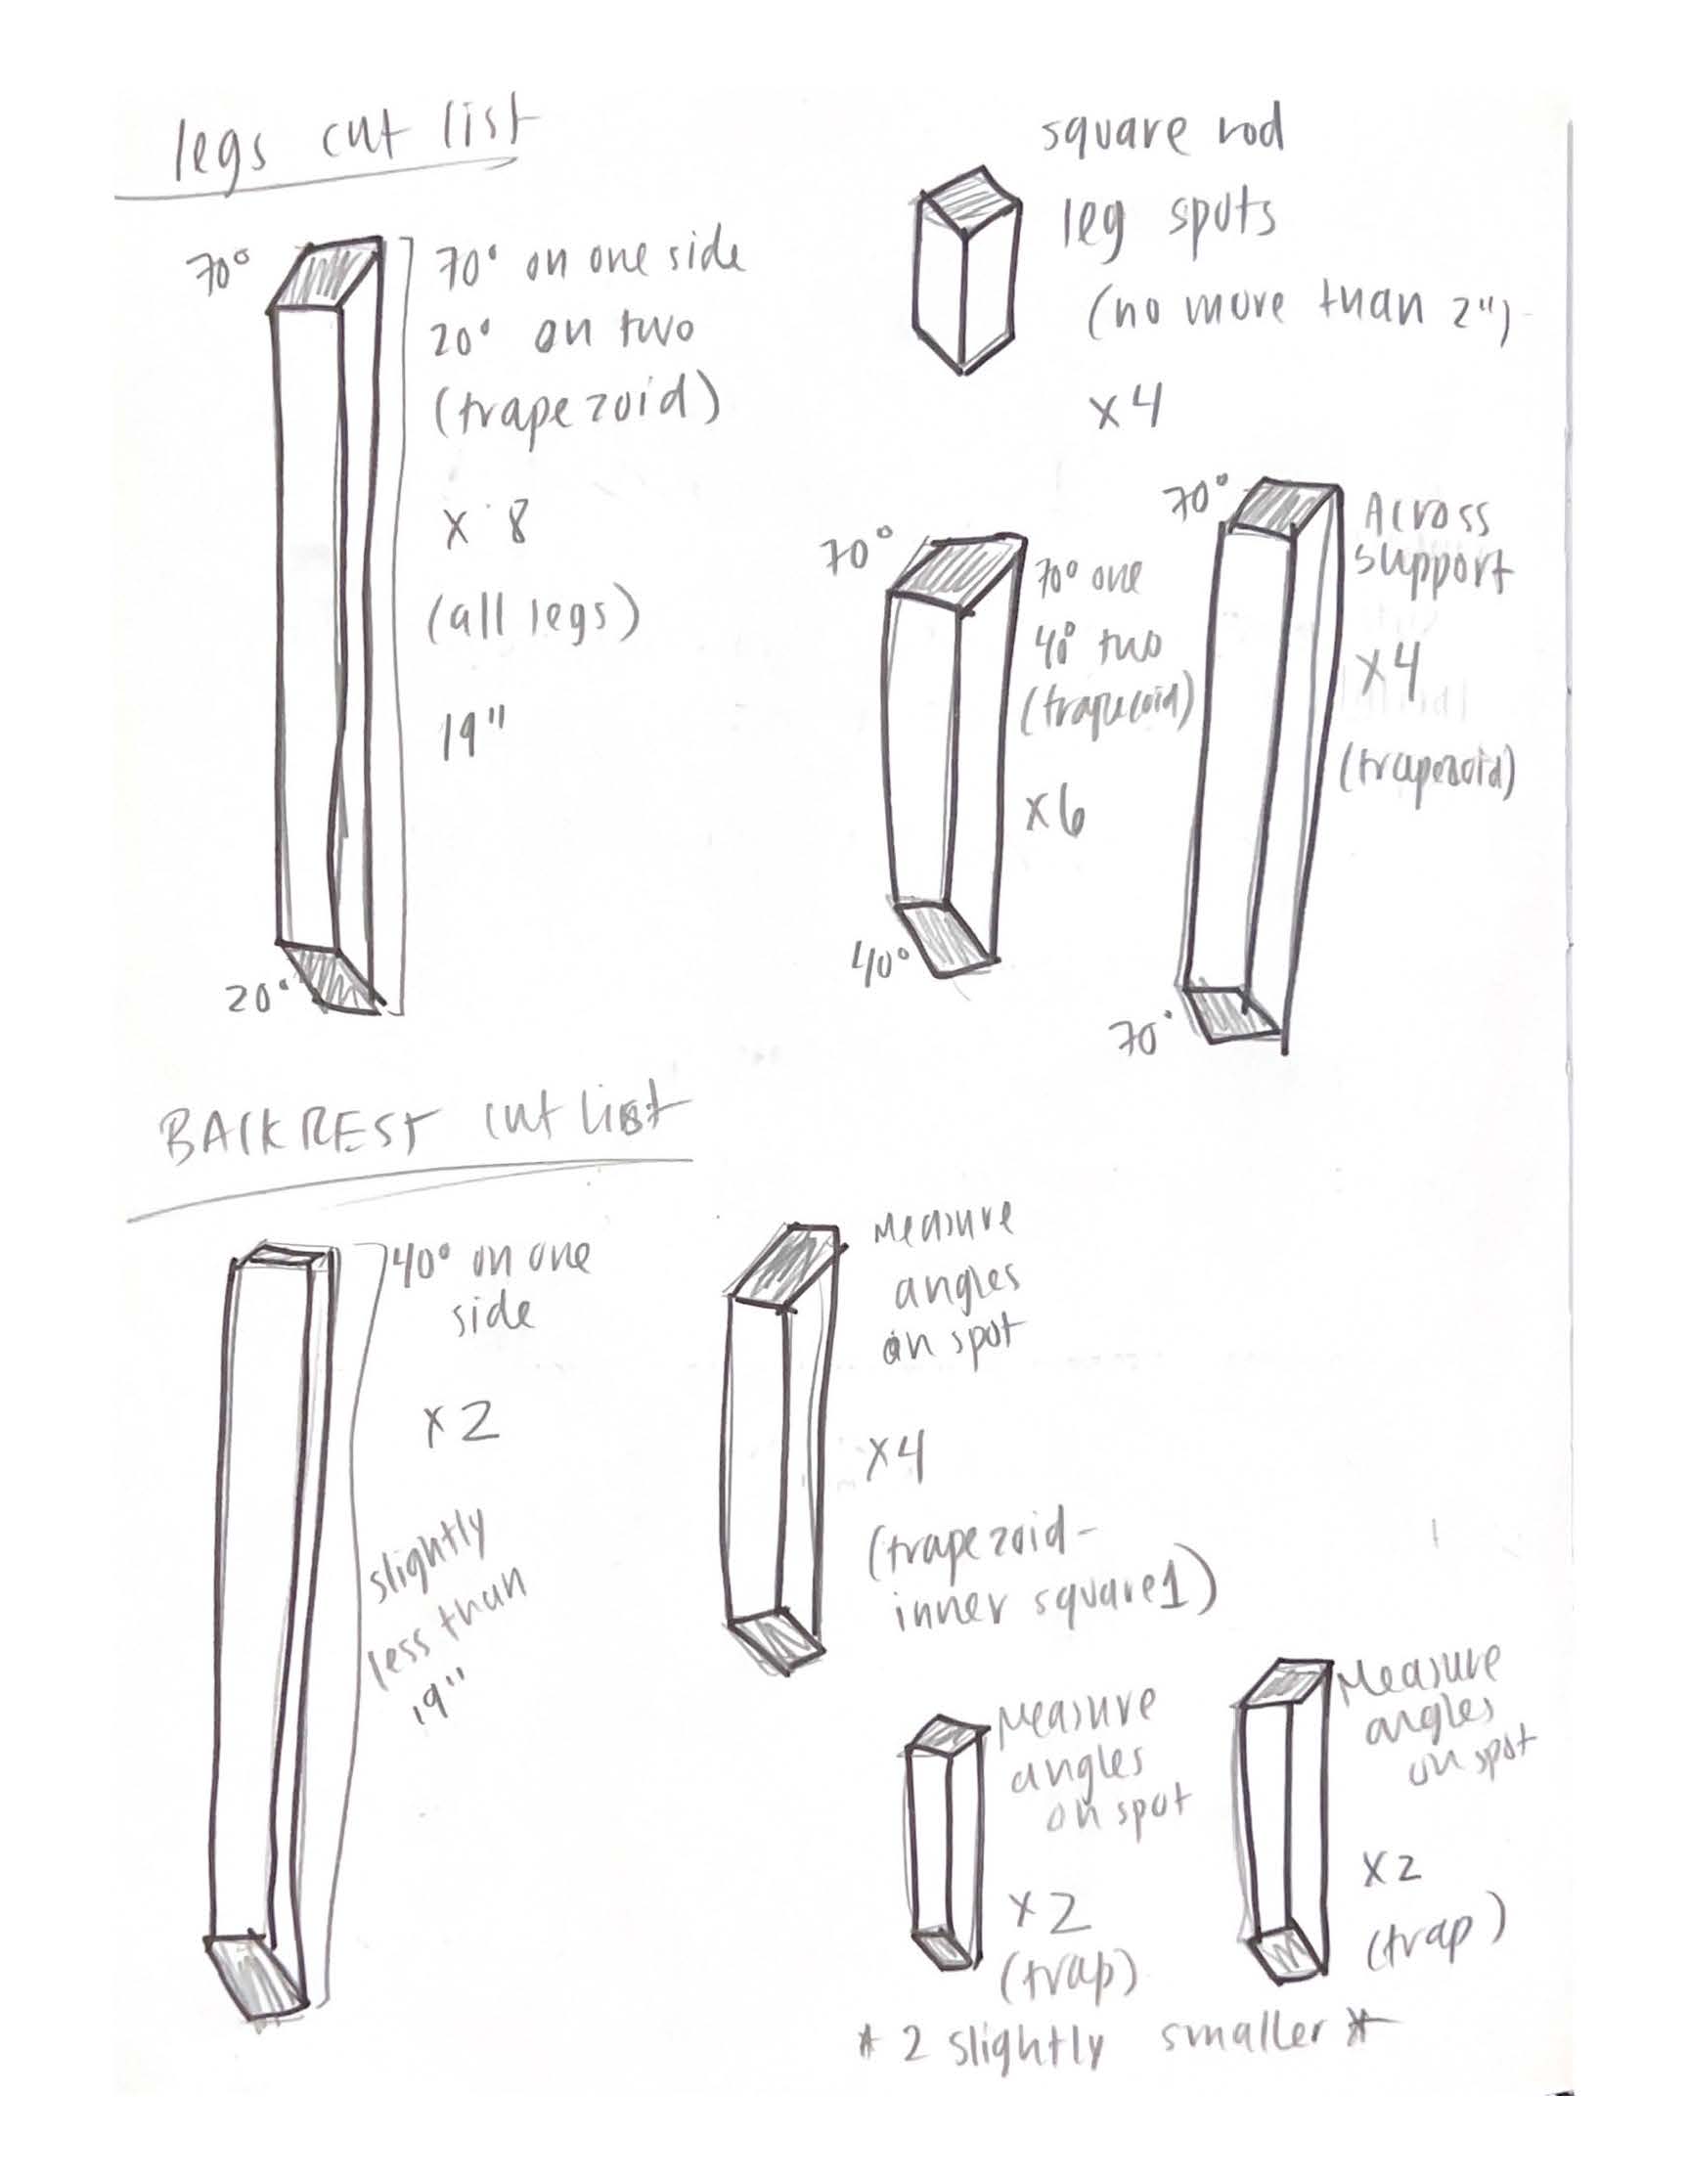 legs cut list
70°
70° on one side
20° on two
(trapezoid)
x 8
(all legs)
19"
20°
square rod
leg spots
(no more than 2")
x4
70°
70° one
40° two
(trapezoid)
x6
40°
70°
Across
support
x4
(trapezoid)
70°
BACKREST cut list
40° on one
side
x2
slightly
less than
19"
Measure
angles
on spot
x4
(trapezoid-
inner square1)
Measure
angles
on spot
x2
(trap)
Measure
angles
on spot
x2
(trap)
* 2 slightly smaller *